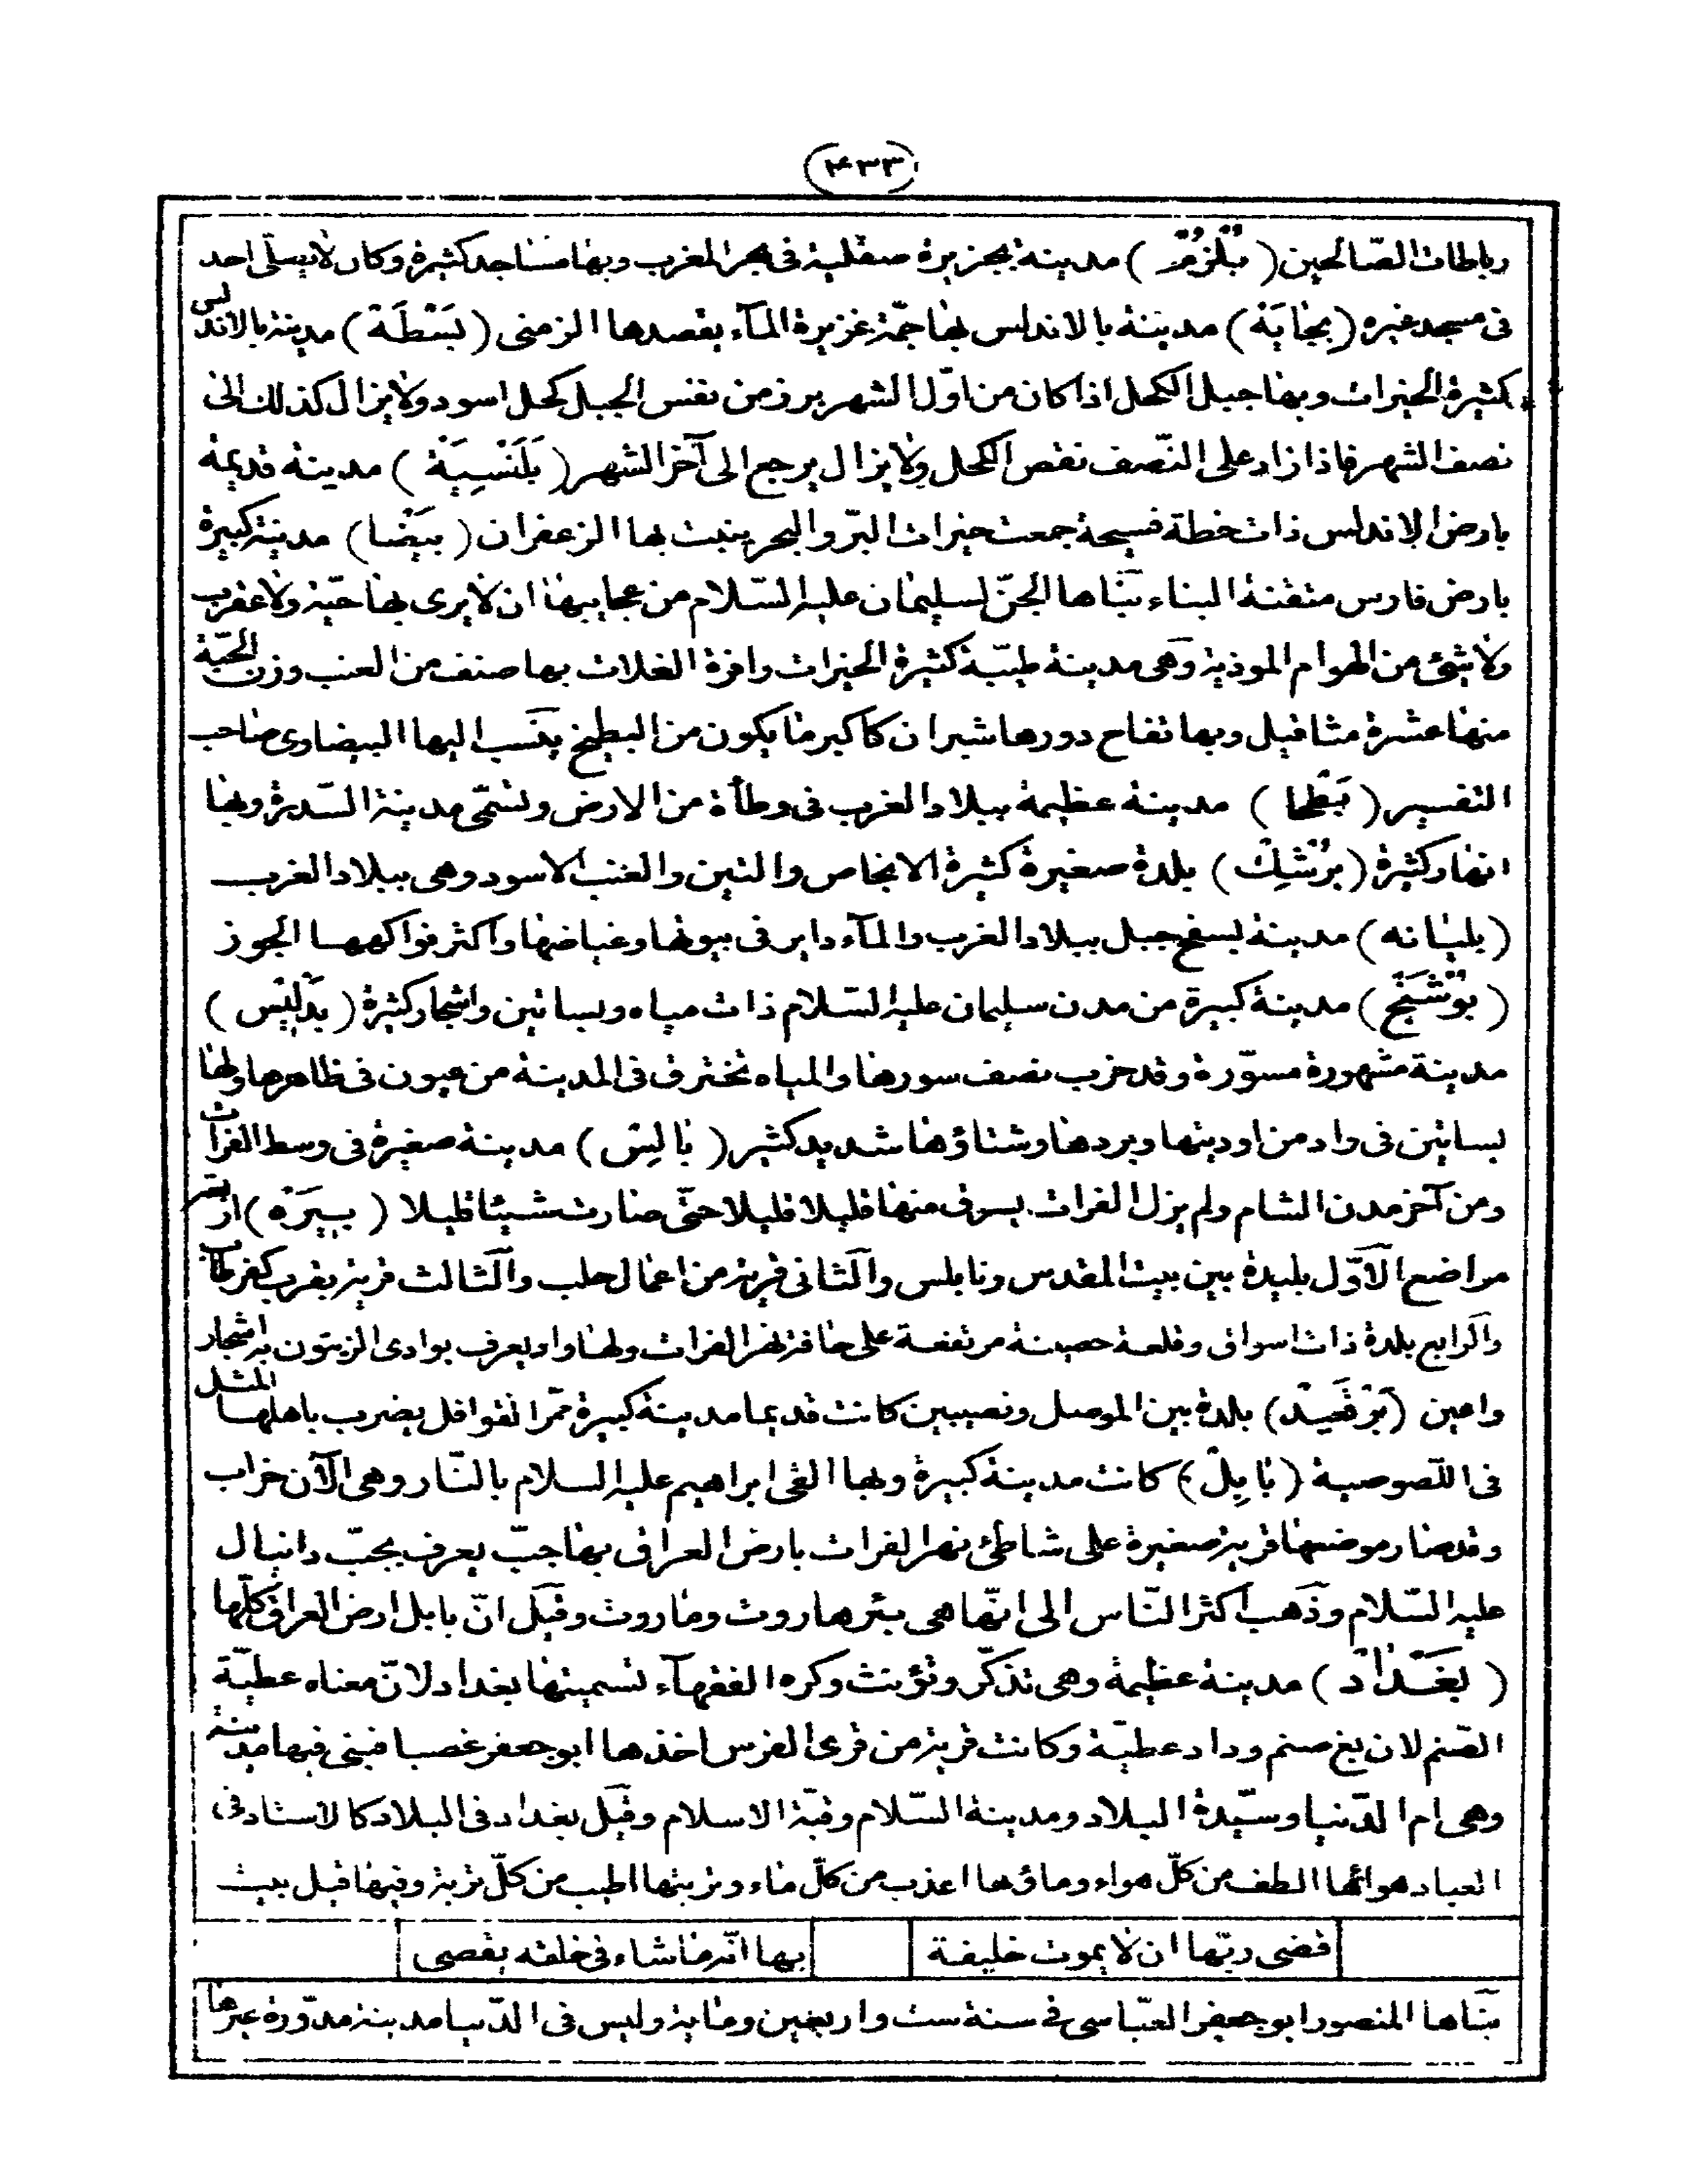 (۴۳۳)
رباطات الصّالحین ( بَلْزَمُ ) مدینة بجزیرة صقلیة فی بحر المغرب وبها مساجد کثیرة وکان لایصلّی احد
فی مسجد غیره ( بِجَایَة ) مدینة بالاندلس بها حمّة غزیرة المآء یقصدها الزمنی ( بَسْطَة ) مدینة بالاندلس
کثیرة الخیرات وبها جبل الکحل اذا کان من اوّل الشهر برز من نفس الجبل کحل اسود ولایزال کذلک الی
نصف الشهر فاذا زاد علی النّصف نقص الکحل ولایزال یرجع الی آخر الشهر ( بَلَنْسِیَة ) مدینة قدیمة
بارض الاندلس ذات خطة فسیحة جمعت خیرات البرّ والبحر ینبت بها الزعفران ( بَیْضا ) مدینة کبیرة
بارض فارس متقنة البناء بَنَاها الجنّ لسلیمان علیه السّلام من عجایبها ان لایری بها حیّة ولا عقرب
ولا شیٔ من الهوام الموذیة وهی مدینة طیّبة کثیرة الخیرات وافرة الغلات بها صنف من العنب وزن الحبّة
منها عشرة مثاقیل وبها تفاح دورها شبران کاکبر مایکون من البطیخ ینسب الیها البیضاوی صاحب
التفسیر ( بَطْحا ) مدینة عظیمة ببلاد الغرب فی وطأة من الارض وتسمّی مدینة السّدرة وبها
انهار کثیرة ( بِرْشِک ) بلدة صغیرة کثیرة الانجاص والتین والعنب الاسود وهی ببلاد الغرب
( بلیانه ) مدینة بسفح جبل ببلاد الغرب والمآء دایر فی بیوتها وغیاضها واکثر فواکهها الجوز
( بُوشَنْج ) مدینة کبیرة من مدن سلیمان علیه السّلام ذات میاه وبساتین واشجار کثیرة ( بَدْلِیْس )
مدینة مشهورة مسوّرة وقد خرب نصف سورها والمیاه تخترق فی المدینة من عیون فی ظاهرها ولها
بساتین فی واد من اودیتها وبردها وشتاؤها شدید کثیر ( بَالِسْ ) مدینة صغیرة فی وسط الفرات
ومن آخر مدن الشام ولم یزل الفرات یسرق منها قلیلا قلیلا حتّی صارت شیئا قلیلا ( بِیرَه ) اربعة
مواضع الاَوّل بلیدة بین بیت المقدس ونابلس والثانی قریة من اعمال حلب والثالث قریة بقرب کفرطاب
والرابع بلدة ذات اسواق وقلعة حصینة مرتفعة علی حافة نهر الفرات ولها واد یعرف بوادی الزیتون به اشجار
واعین ( بَرْقَعید ) بلدة بین الموصل ونصیبین کانت قدیما مدینة کبیرة ممرّ القوافل یضرب باهلها المثل
فی اللصوصیة ( بَابِل ) کانت مدینة کبیرة وبها القی ابراهیم علیه السلام بالنّار وهی الآن خراب
وقد صار موضعها قریة صغیرة علی شاطئ نهر الفرات بارض العراق بها جبّ یعرف بجبّ دانیال
علیه السّلام وذَهب اکثر النّاس الی انّها هی بئر هاروت وماروت وقیل انّ بابل ارض العراق کلّها
( بَغْدَاد ) مدینة عظیمة وهی تذکّر وتؤنث وکره الفقهآء تسمیتها بغداد لانّ معناه عطیّة
الصّنم لان بغ صنم وداد عطیّة وکانت قریة من قری الفرس اخذها ابو جعفر غصبا فبنی فیها مدینة
وهی ام الدّنیا وسیّدة البلاد ومدینة السّلام وقبّة الاسلام وقیل بغداد فی البلاد کالاستاد فی
العباد هوائها الطف من کلّ هواء وماؤها اعذب من کلّ ماء وتربتها اطیب من کلّ تربة وفیها قیل بیت
قضی ربّها ان لایموت خلیفة بها انّه ماشاء فی خلقه یقصی
بَنَاها المنصور ابو جعفر العبّاسی فی سنة ست واربعین ومایة ولیس فی الدّنیا مدینة مدوّرة غیرها